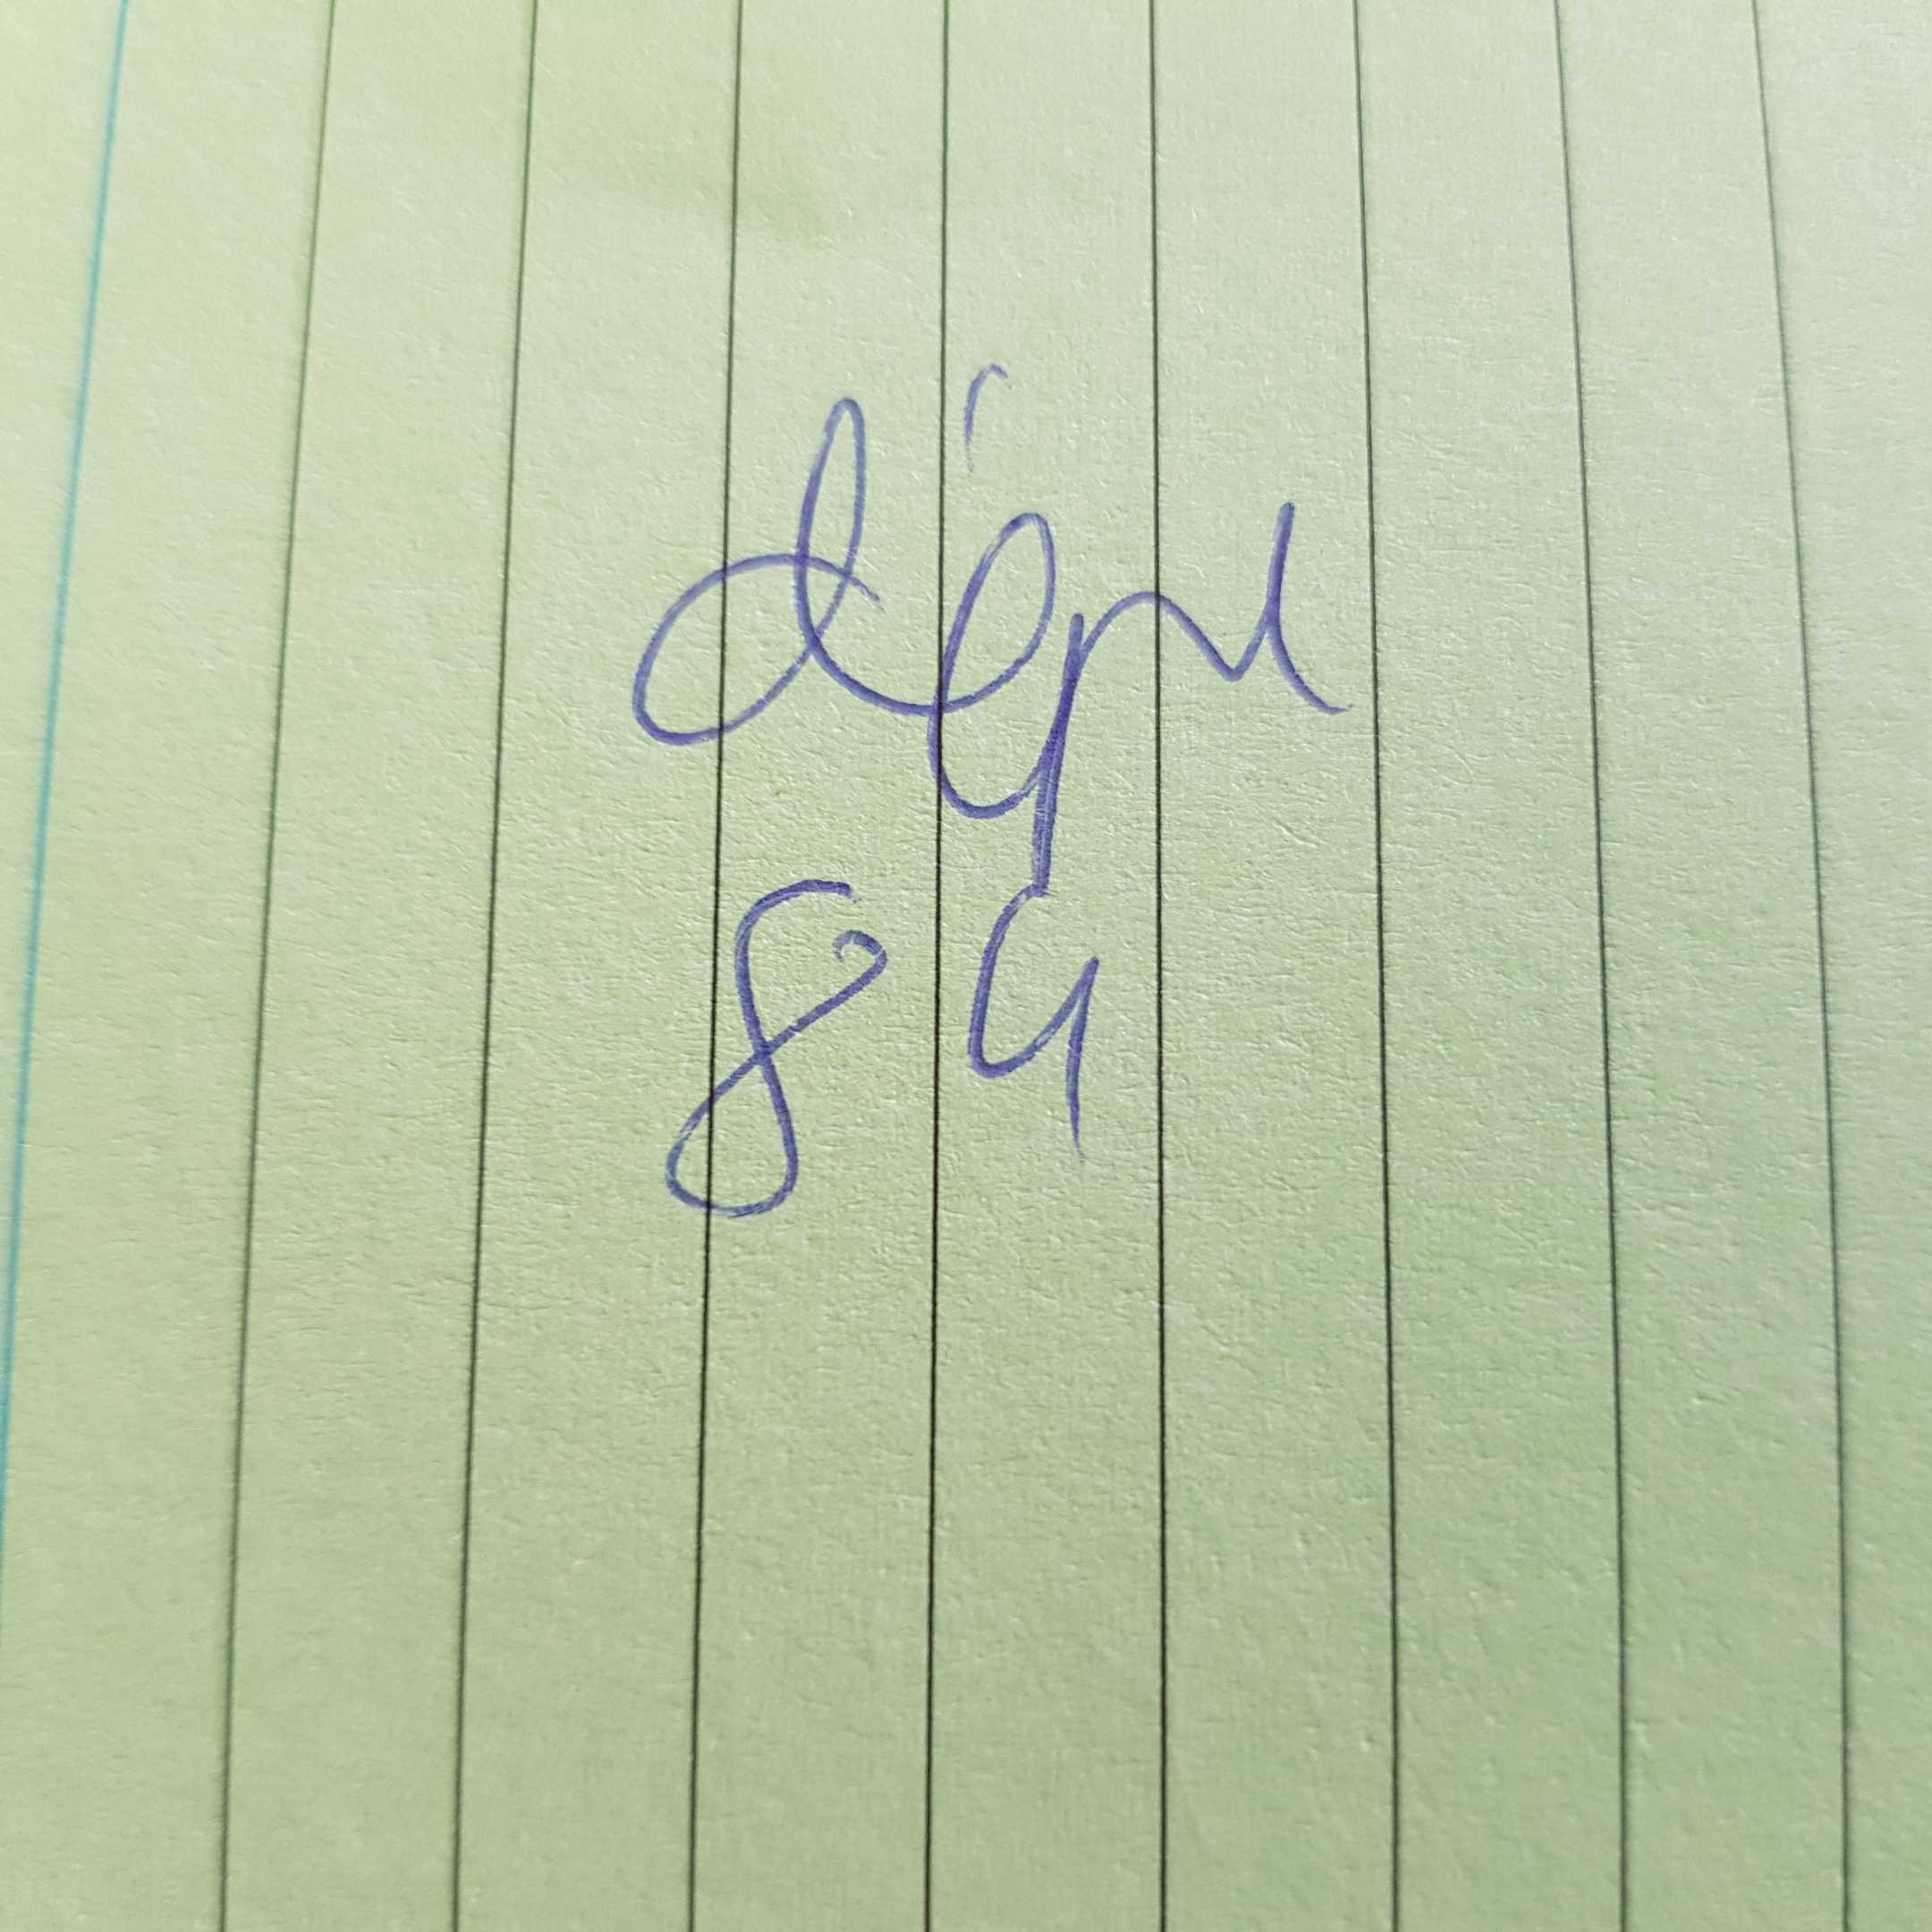 dépu
84